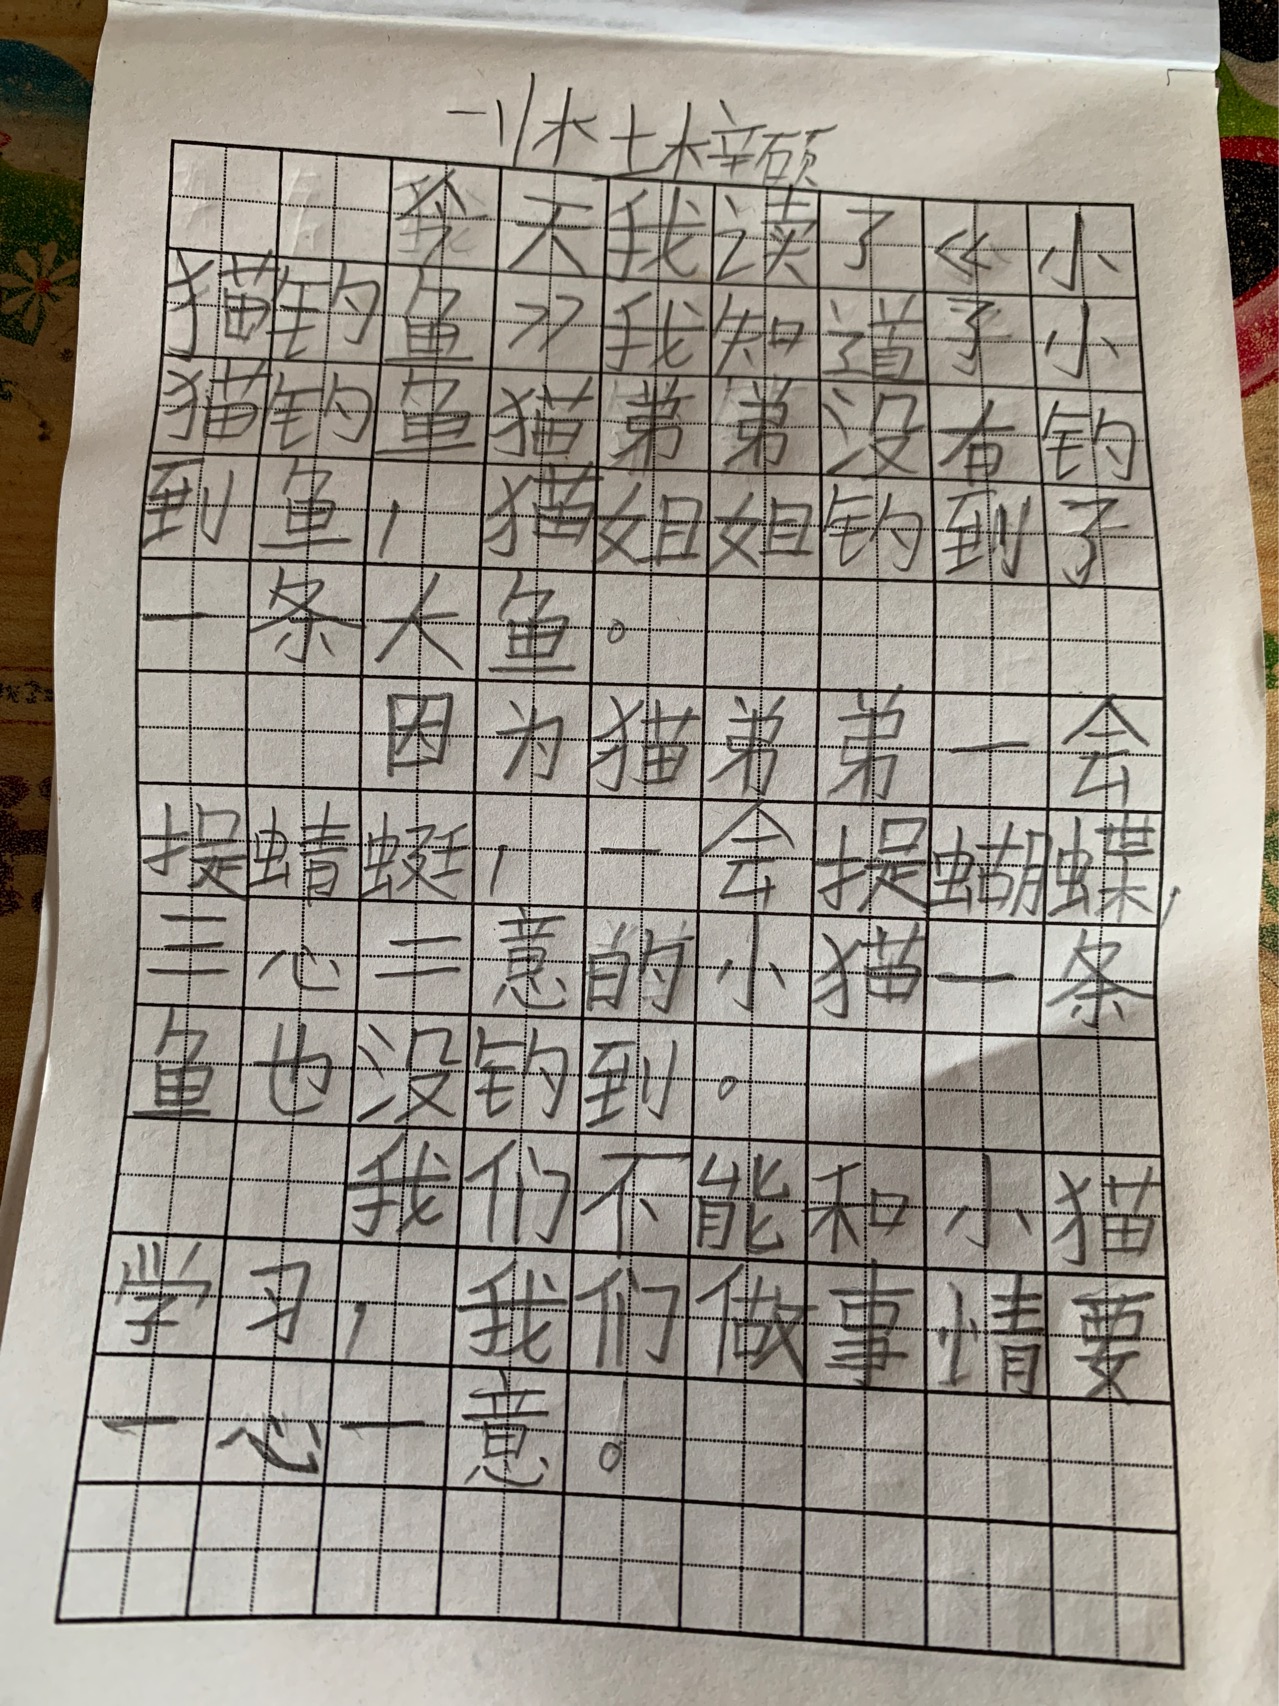 今天我读了《小
猫钓鱼》我知道了小
猫钓鱼猫弟弟没有钓
到鱼，猫姐姐钓到了
一条大鱼。
因为猫弟弟一会
捉蜻蜓，一会捉蝴蝶，
三心二意的小猫一条
鱼也没钓到。
我们不能和小猫
学习，我们做事情要
一心一意。